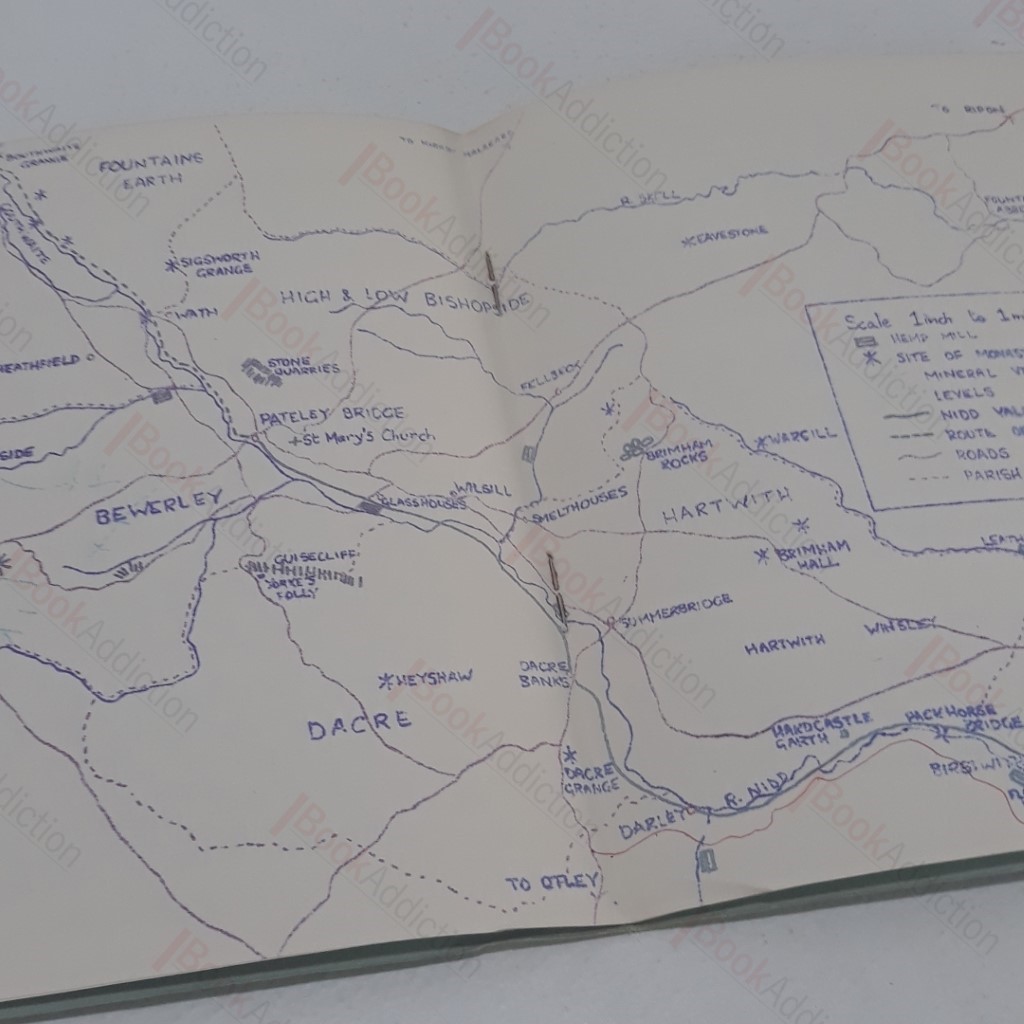 TO RIPON
FOUNTAINS
EARTH
R. SKELL
EAVESTONE
SIGSWORTH
GRANGE
HIGH & LOW BISHOPSIDE
WATH
Scale 1inch to 1m
HEMP MILL
SITE OF MONAS
MINERAL
LEVELS
NIDD VAL
ROUTE O
ROADS
PARISH
HEATHFIELD
STONE
QUARRIES
FELLBECK
PATELEY BRIDGE
St Mary's Church
BRIMHAM
ROCKS
WARSILL
SIDE
BEWERLEY
GLASSHOUSES
WILSILL
SMELTHOUSES
HARTWITH
BRIMHAM
HALL
GUISECLIFF
YORKE'S
FOLLY
SUMMERBRIDGE
HARTWITH
WINSLEY
HEYSHAW
DACRE
BANKS
DACRE
HARDCASTLE
GARTH
PACKHORSE
BRIDGE
DACRE
GRANGE
R. NIDD
DARLEY
TO OTLEY
BookAddiction